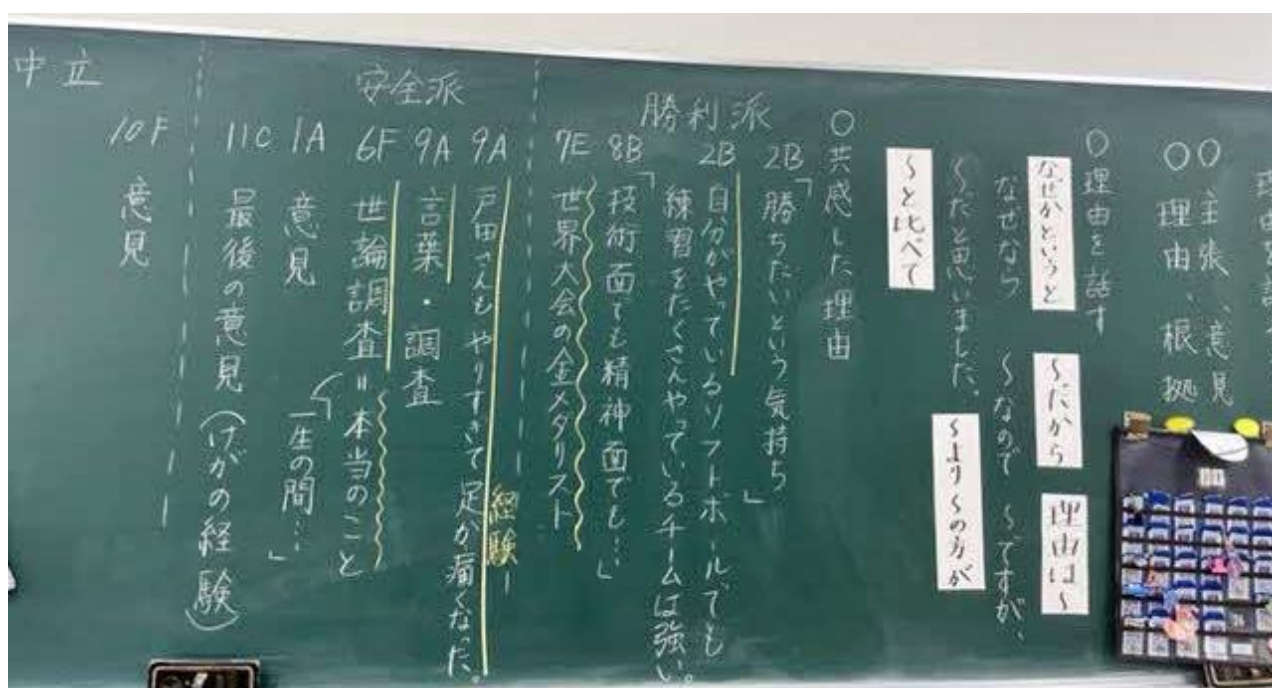 ○主張、意見
○理由、根拠
○理由を話す
なぜかというと
〜だから
理由は〜
なぜなら
〜なので
〜ですが、
〜だと思いました。
〜より〜の方が
〜と比べて
○共感した理由
勝利派
2B「勝ちたいという気持ち」
2B 自分がやっているソフトボールでも
練習をたくさんやっているチームは強い。
8B「技術面でも精神面でも…」
7E 世界大会の金メダリスト
安全派
9A 戸田さんもやりすぎて足が痛くなった。
経験
9A 言葉・調査
6F 世論調査=本当のこと
1A 意見「一生の間…」
11C 最後の意見(けがの経験)
中立
10F 意見